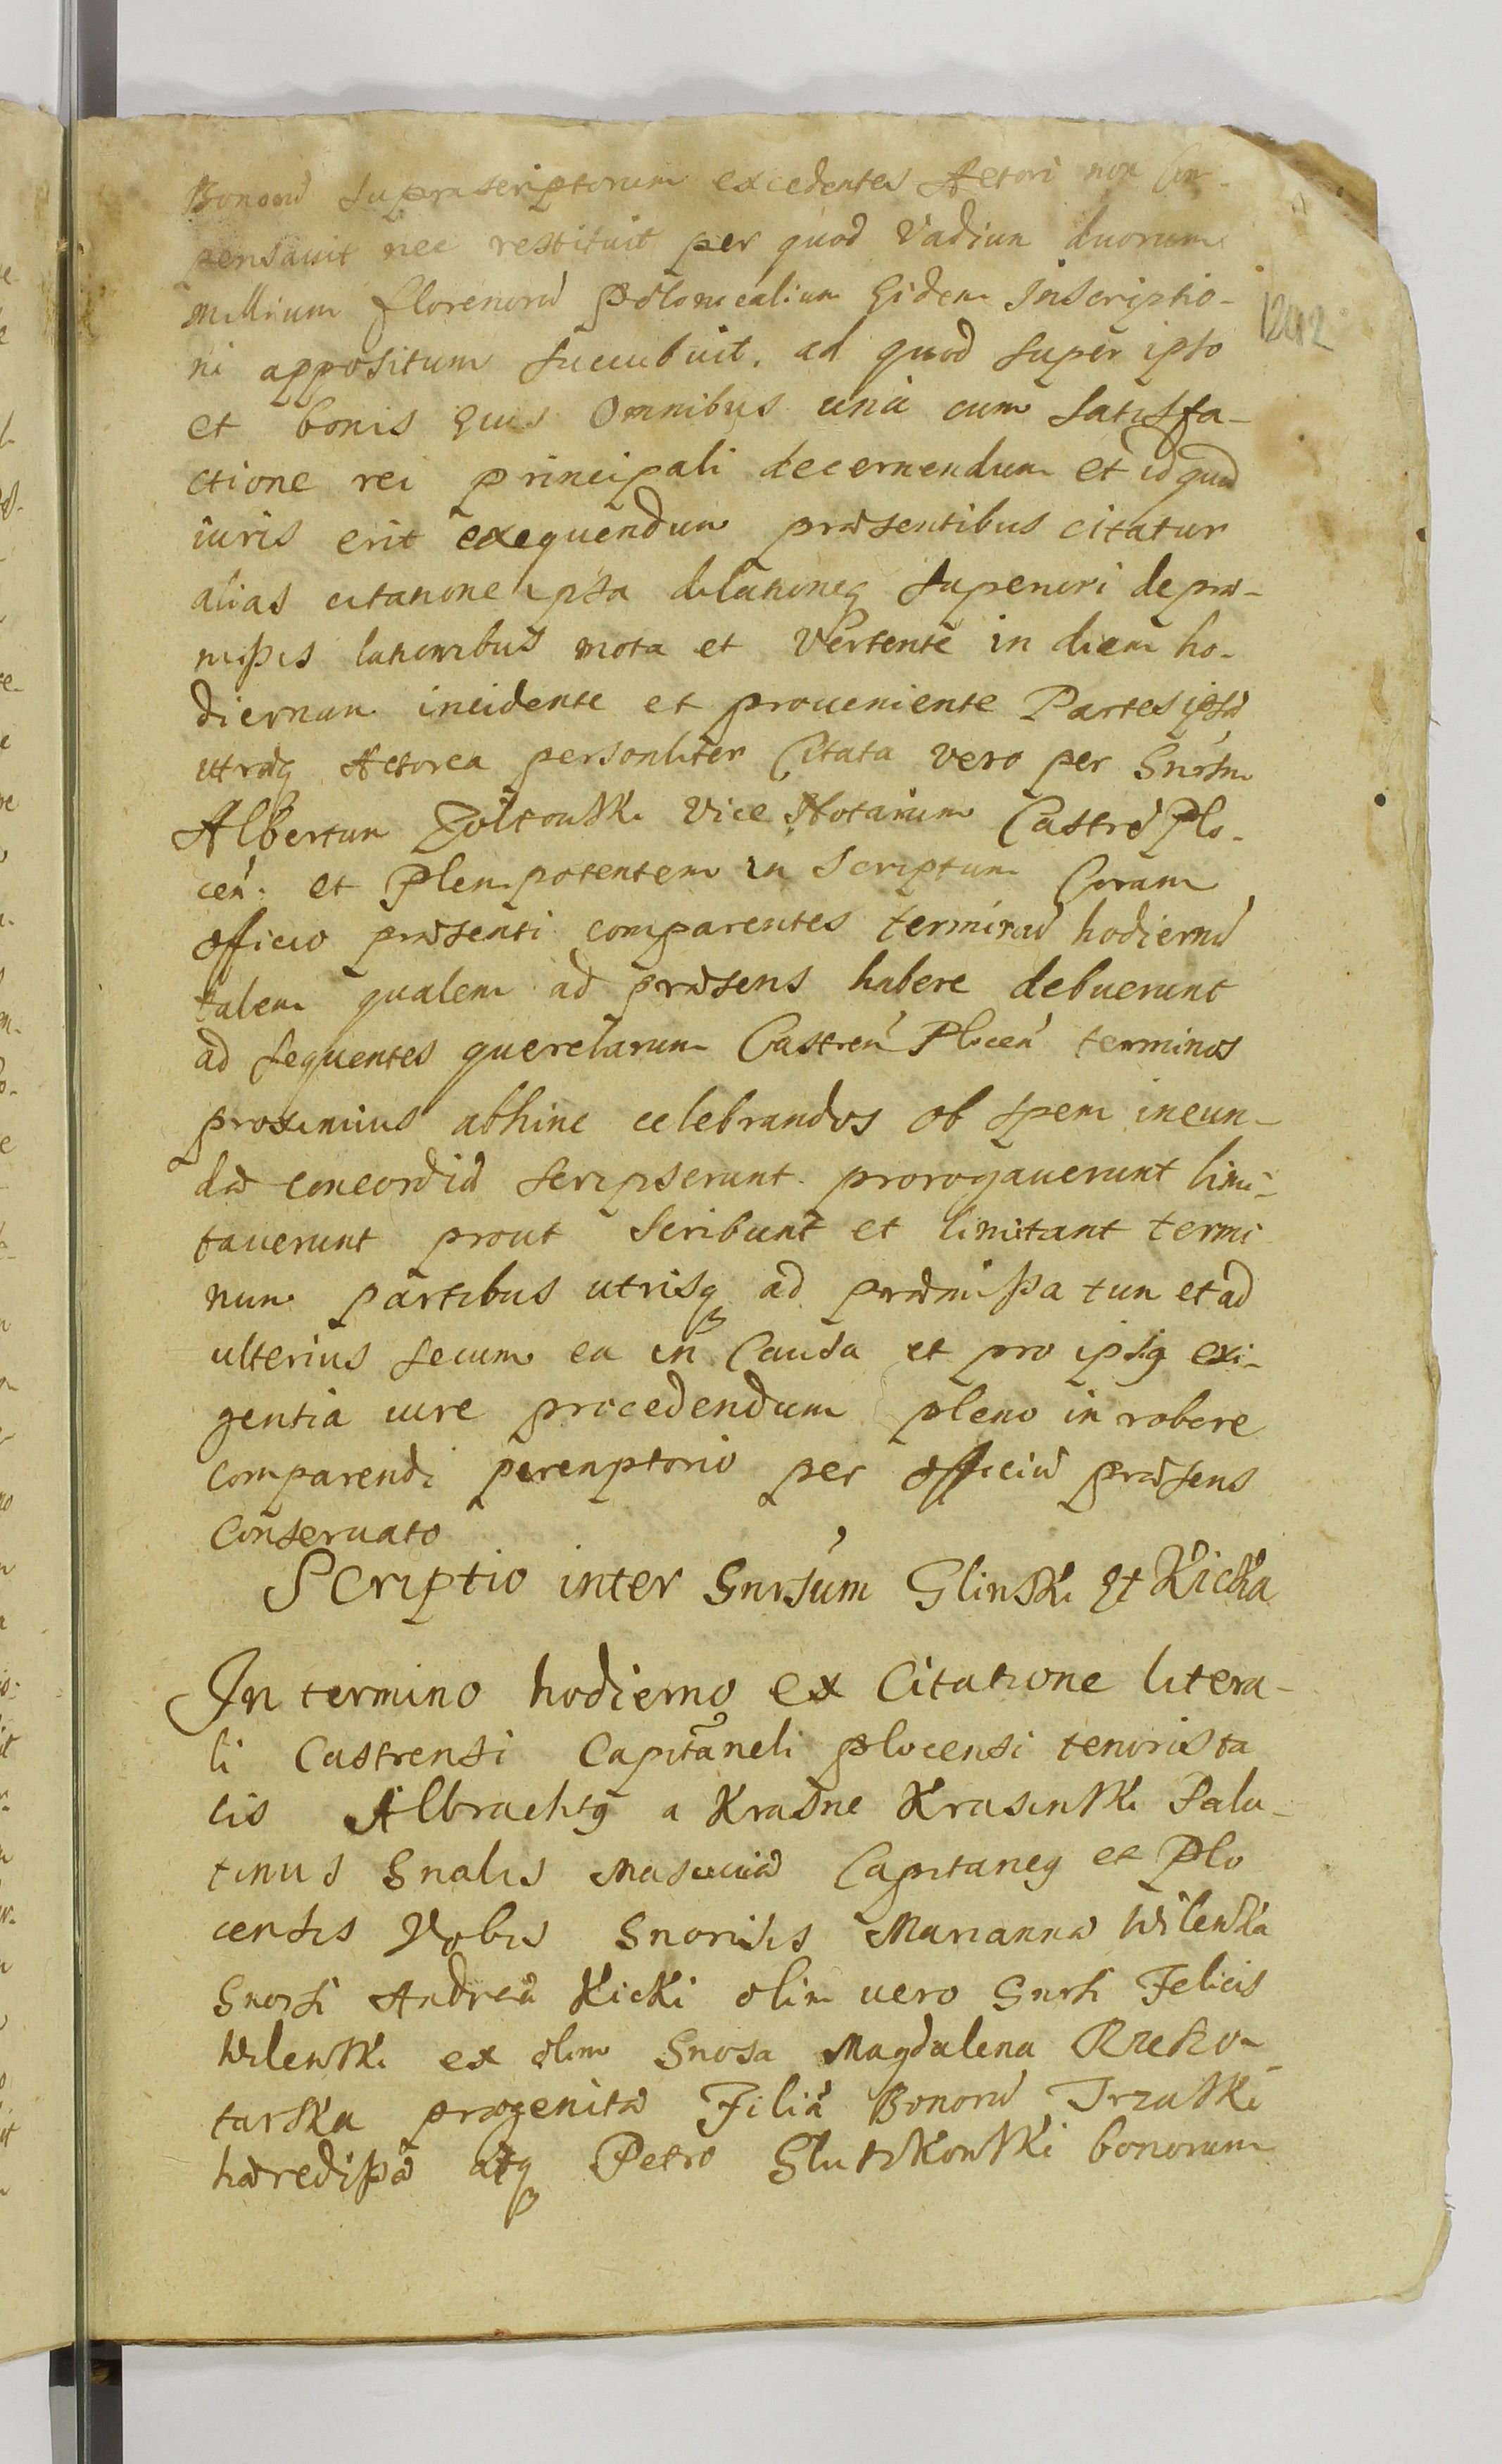 Bonorũ supra scriptorum excedentes Actori non com-
pensauit nec restituit per quod Vadium duorum
millium florenorũ Polonicalium Eidem Inscriptio-
ni appositum succubuit. ad quod super ipso
et bonis Eius Omnibus una cum satisfa-
ctione rei principali decernendum et id quod
iuris erit exequendum præsentibus citatur
alias citatione ipsa dilationeq superiori de præ-
missis lationibus mota et Vertente in diem ho-
diernum incidente et proueniente Partes ipsæ
utræq Actorea personliter Citata vero per Gnrsm
Albertum Zoltowski Vice Notarium Castrẽ Plo-
ceń. et Plenipotentem in scriptum Coram
officio præsenti comparentes terminũ hodiernũ
talem qualem ad præsens habere debuerunt
ad sequentes querelarum Castreń Ploceń terminos
proximius abhinc celebrandos ob spem ineun-
dæ concordiæ scripserunt prorogauerunt limi-
tauerunt prout scribunt et limitant termi
num partibus utrisq ad præmissa tum et ad
ulterius secum ea in Causa et pro ipsiq exi-
gentia iure procedendum pleno in robore
comparendi peremptorio per officiũ præsens
conseruato
Scriptio inter Gnrsum Glinski Et Kicka
In termino hodierno ex Citatione litera-
li Castrensi Capitaneli plocensi tenoris ta
lis Albrachtq a Krasne Krasinski Pala-
tinus Gnalis Masouiæ Capitaneq et Plo
censis Vobis Gnorisis Mariannæ Wilenska
Gnorsi Andreæ Kicki olim uero Gnrsi Felicis
Wilenski ex olim Gnosa Magdalena Rzeszo-
tarska progenitæ Filiæ Bonorũ Trzaski
hæredissæ atq Petro Slutzkowski bonorum
1242